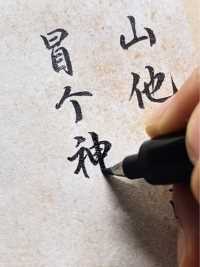 山他
冒个神